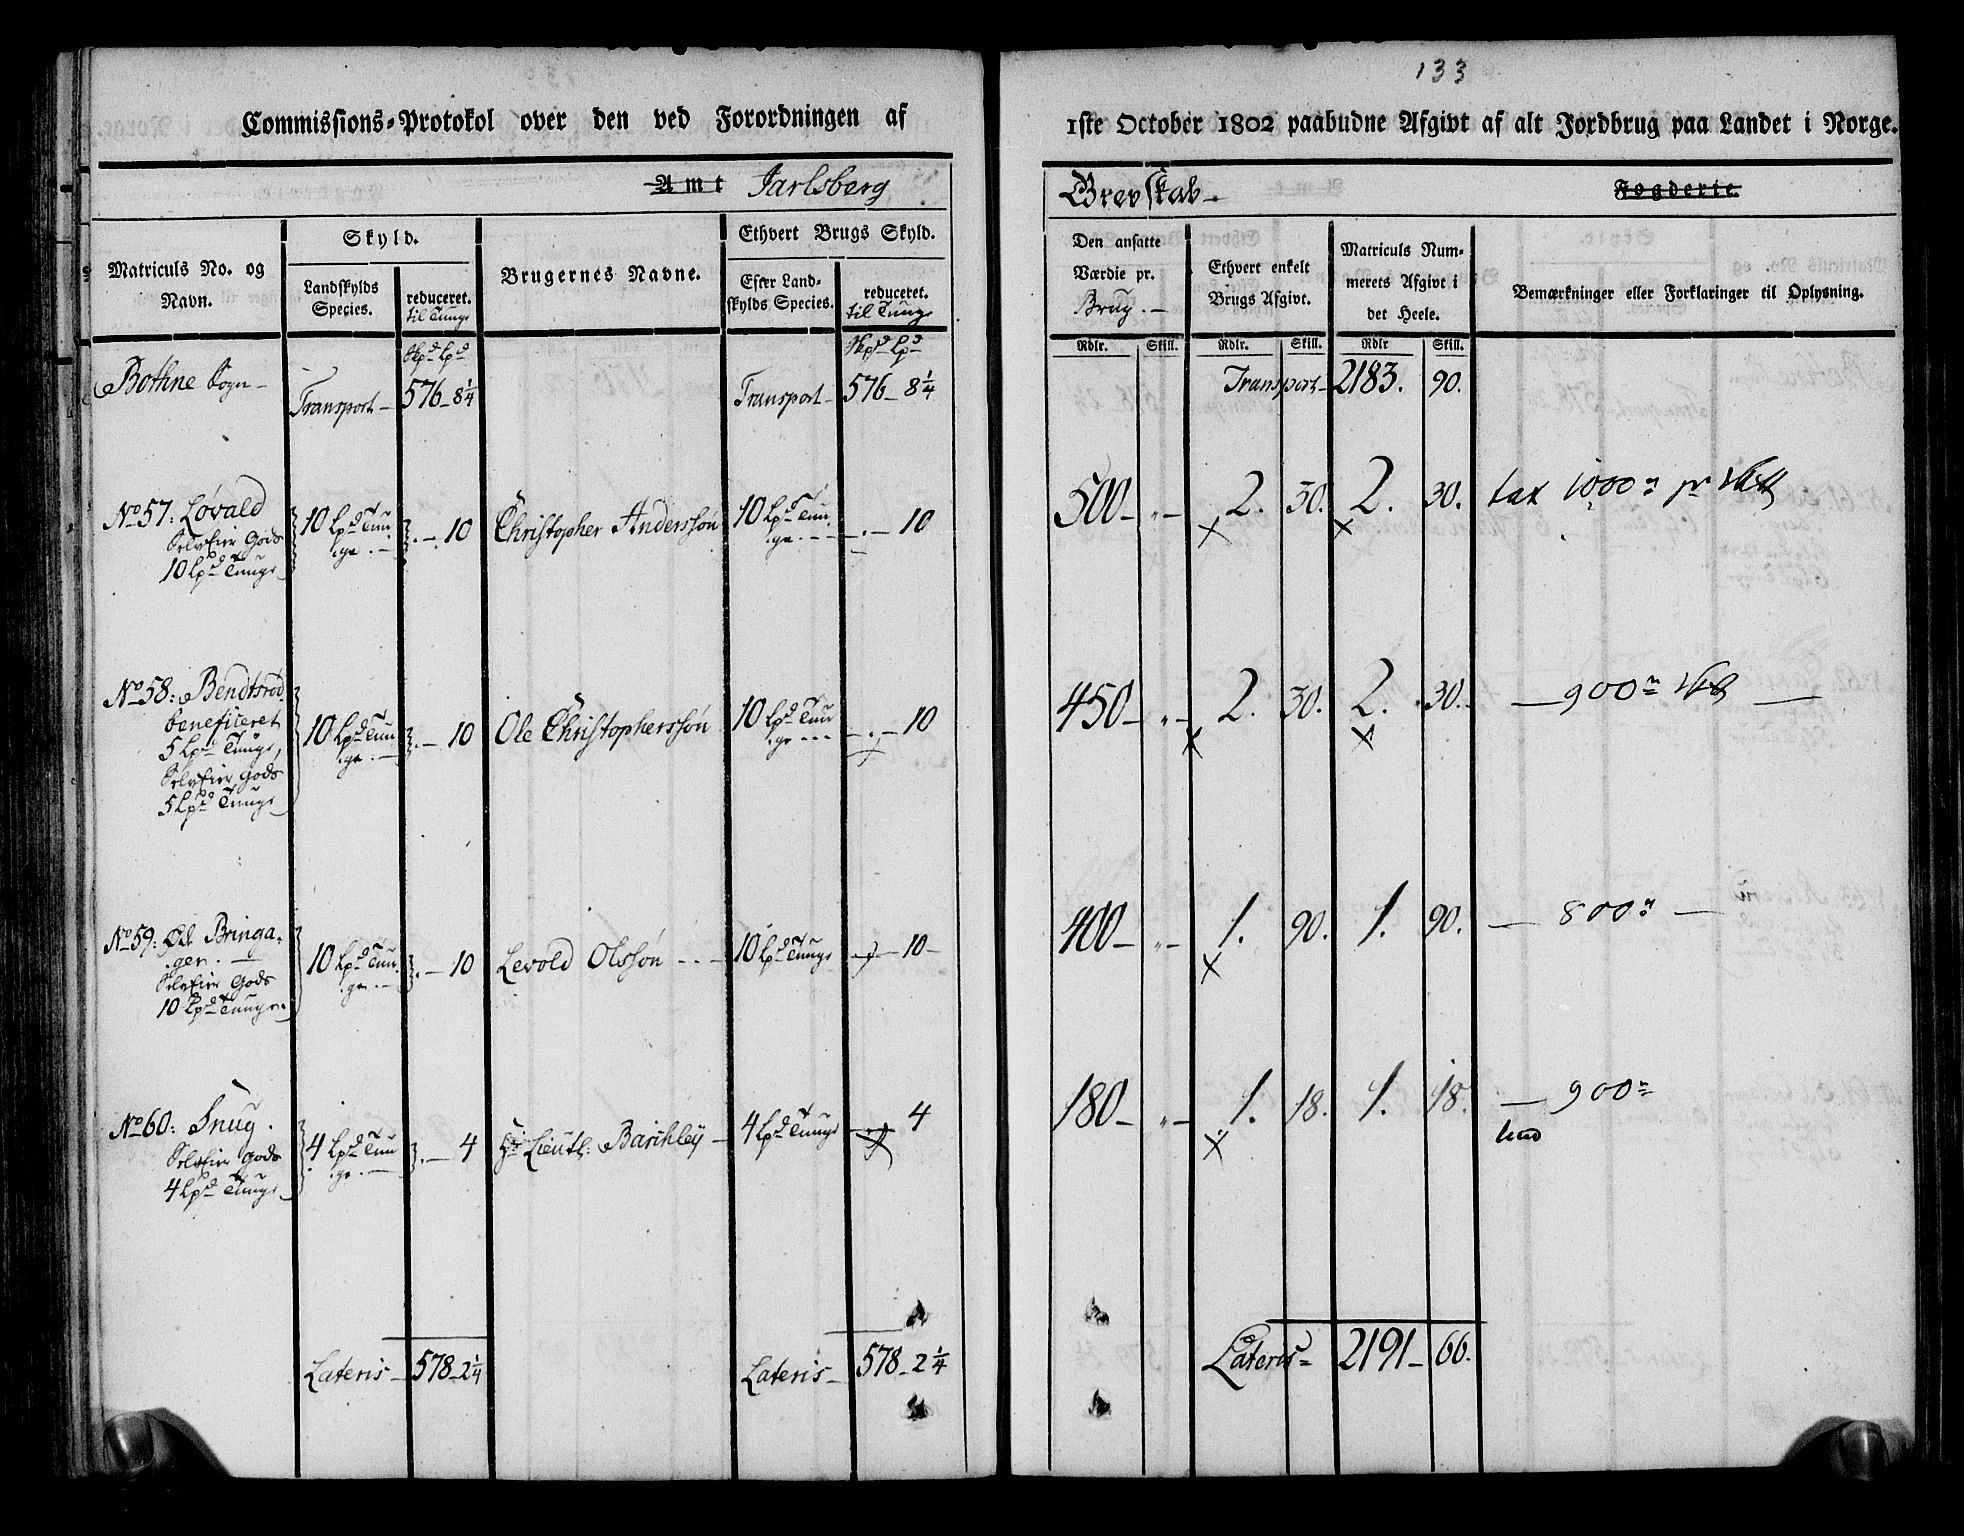 133
Commissions-Protokol over den ved Forordningen af 1ste October 1802 paabudne Afgivt af alt Jordbrug paa Landet i Norge.
Amt Jarlsberg Grevskab. Fogderie
Matriculs No. og Navn.
Skyld.
Landskylds Species.
reduceret. til Tunge
Brugernes Navne.
Ethvert Brugs Skyld.
Efter Landskylds Species.
reduceret. til Tunge
Den ansatte Værdie pr. Brug.
Ethvert enkelt Brugs Afgivt.
Matriculs Nummerets Afgivt i det Heele.
Bemærkninger eller Forklaringer til Oplysning.
Skpd Lpd Skpd Lpd Rdlr. Skill. Rdlr. Skill. Rdlr Skill.
Bothne Sogn
Transport 576 8 1/4 Transport 576 8 1/4 Transport 2183. 90.
No 57: Løvald 10 Lpd Tunge 10 Christopher Anderssøn 10 Lpd Tunge 10 500 2. 30. 2. 30. tax 1000
Selveier Gods
10 Lpd Tunge
No 58: Bendtsrød 10 Lpd Tunge 10 Ole Christopherssøn 10 Lpd Tunge 10 450 2. 30. 2. 30. 900
beneficeret
5 Lpd Tunge,
Selveier Gods
5 Lpd Tunge
No 59: Ød. Bringager 10 Lpd Tunge 10 Levold Olssøn 10 Lpd Tunge 10 400 1. 90. 1. 90. 800
Selveier Gods
10 Lpd Tunge
No 60: Snug. 4 Lpd Tunge 4 Hr Lieutl: Barchley 4 Lpd Tunge 4 180 1. 18. 1. 18. 900
Selveier Gods
4 Lpd Tunge
Lateris 578 2 1/4 Lateris 578 2 1/4 Lateris 2191 66.